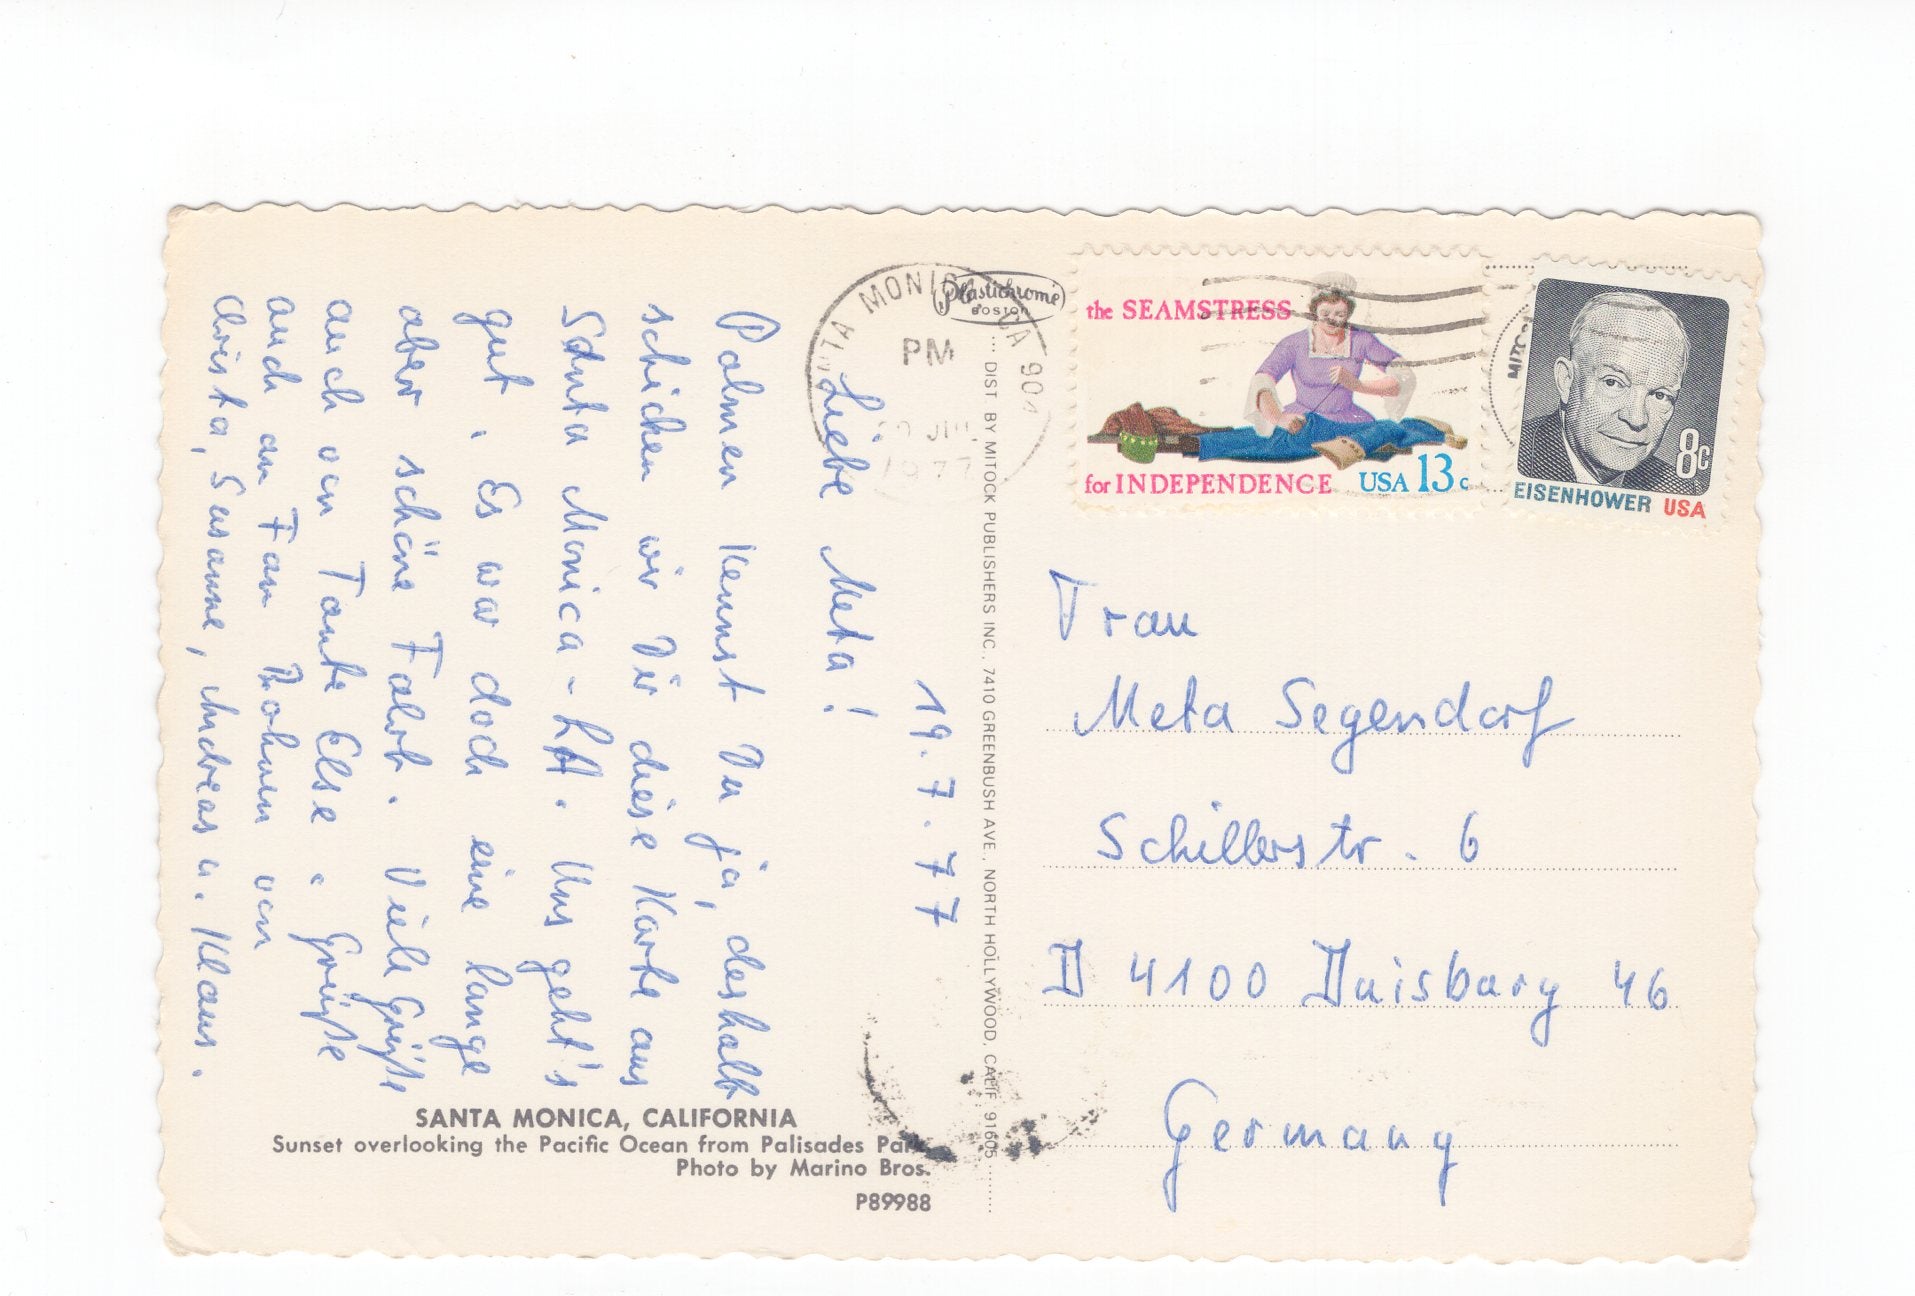 19.7.77
Liebe Meta!
Palmen kennst Du ja, deshalb
schicken wir Dir diese Karte aus
Santa Monica - LA. Uns geht's
gut. Es war doch eine lange
aber schöne Fahrt. Viele Grüße
auch von Tante Else. Grüße
auch an Fam von
Christa, Susanne, Andreas u. Klaus.
SANTA MONICA, CALIFORNIA
Sunset overlooking the Pacific Ocean from Palisades Park
Photo by Marino Bros.
P89988
Plastichrome
BOSTON
DIST. BY MITOCK PUBLISHERS INC., 7410 GREENBUSH AVE., NORTH HOLLYWOOD, CALIF. 91605
MONICA CA 90
PM
1977
the SEAMSTRESS
for INDEPENDENCE USA 13c
8c
EISENHOWER USA
Frau
Meta Segendorf
Schillerstr. 6
D 4100 Duisburg 46
Germany